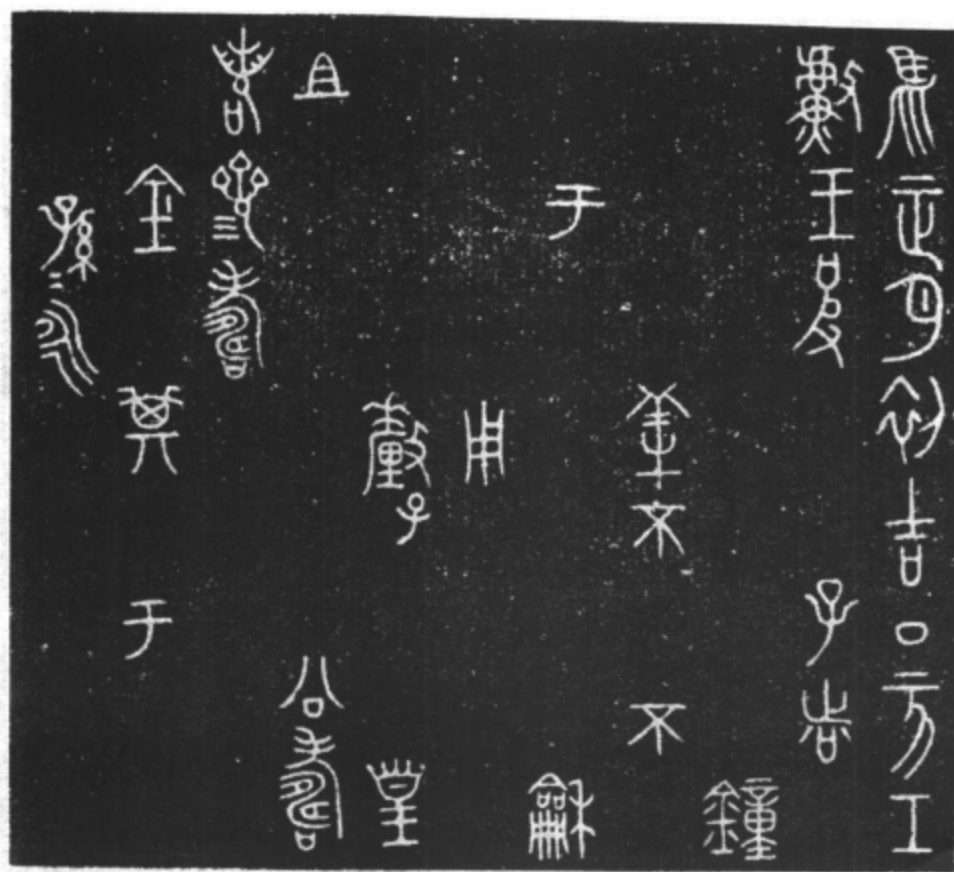 隹正月初吉丁亥工
䱷王皮子者
鐘
羍不不
于龢
用
釐皇
且公壽
若參壽
金其于
孫永